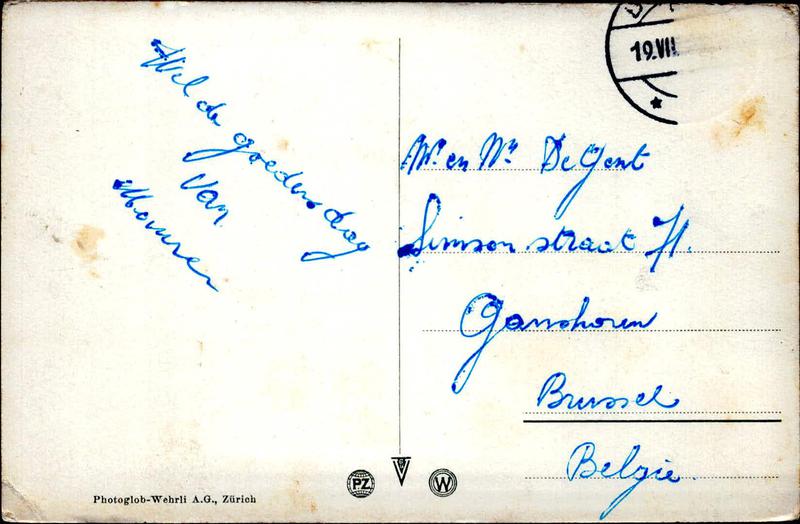 Wel de goedendag
Van
19.VII
Mr. en Mw De Gent
Simson straat 71.
Ganshoren
Brussel
Belgie
PZ
W
Photoglob-Wehrli A.G., Zürich